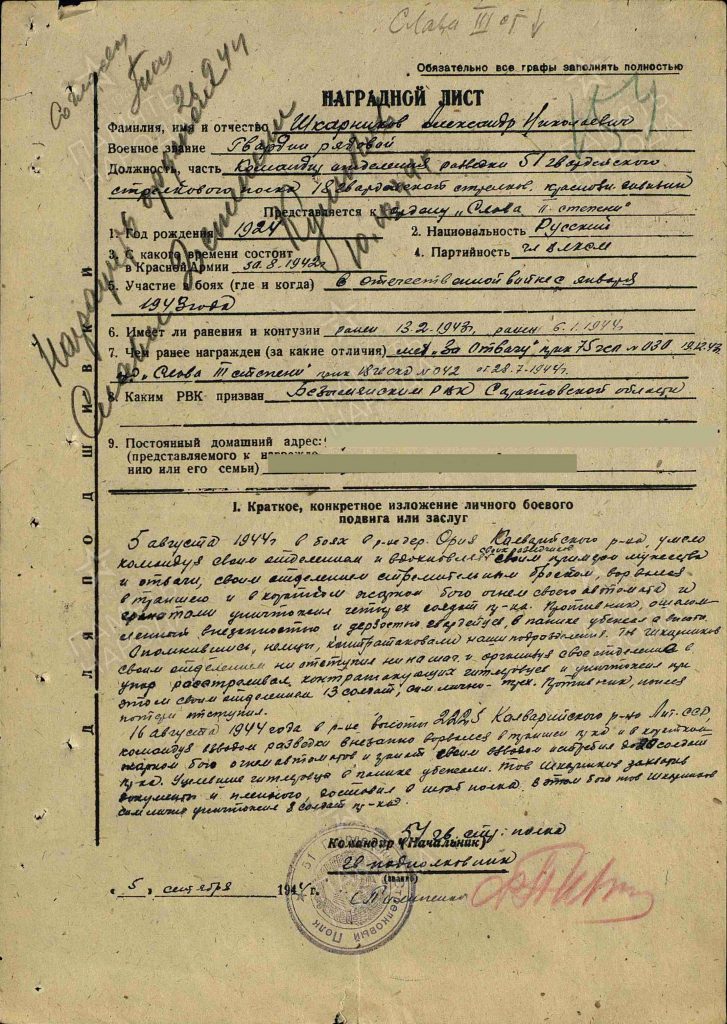 Слава III ст
Обязательно все графы заполнять полностью
НАГРАДНОЙ ЛИСТ
Фамилия, имя и отчество Шкарников Александр Николаевич
Военное звание Гвардии рядовой
Должность, часть Командир отделения разведки 51 гвардейского
стрелкового полка 18 гвардейской стрелков. краснозн. дивизии
Представляется к ордену „Слова II степени"
1. Год рождения 1924
2. Национальность Русский
3. С какого времени состоит
в Красной Армии 8.1942г
4. Партийность чл влксм
5. Участие в боях (где и когда) В отечественной войне с января
1943 года
6. Имеет ли ранения и контузии ранен 13.2.1943г, ранен 6.1.1944г
7. Чем ранее награжден (за какие отличия) мед „За Отвагу" 75 гсп №030 19.12.43
„Слова III степени" №042 от 28.7.1944г.
8. Каким РВК призван РВК Саратовской области
9. Постоянный домашний адрес:
(представляемого к
нию или его семьи)
I. Краткое, конкретное изложение личного боевого
подвига или заслуг
5 августа 1944г в боях в р-не дер. Кальварийского р-на умело
командуя своим отделением и своим примером мужества
и отваги, своим отделением стремительным броском, ворвался
в траншею и в коротком жарком бою огнем своего автомата и
гранатами уничтожил четырех солдат пр-ка. Противник,
внезапностью и дерзостью в панике убежал
Опомнившись, немцы, контратаковали наши подразделения. Тов Шкарников
своим отделением не отступил ни на шаг и организуя свое отделение в
упор расстреливал контратакующих гитлеровцев и уничтожил при
этом своим отделением 13 солдат, сам лично трех. Противник, понеся
потери отступил.
16 августа 1944 года в р-не высоты 222,5 Кальварийского р-на Лит-ССР,
командуя взводом разведки внезапно ворвался в траншеи пр-ка и в коротком
жарком бою огнем автоматов и гранат своим взводом истребил до 20 солдат
пр-ка. Уцелевшие гитлеровцы в панике убежали. Тов Шкарников захватив
документы и пленного, доставил в штаб полка. В этом бою тов Шкарников
сам лично уничтожил 8 солдат пр-ка.
51 гв. стр. полка
Командир (Начальник)
гв подполковник
(звание)
„5" сентября 1944 г.
ДЛЯ ПОДШИВКИ